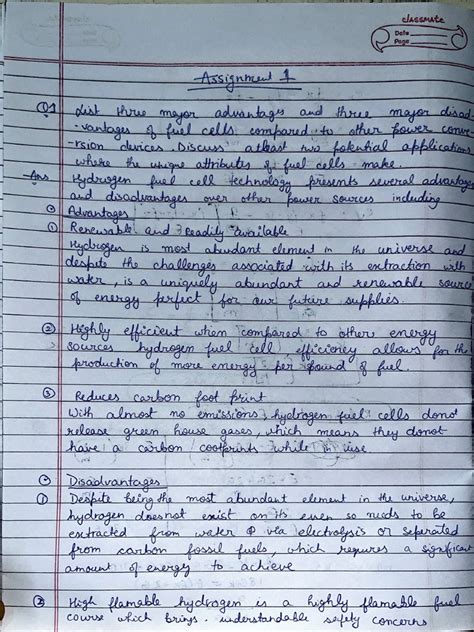 classmate
Date
Page
Assignment 1
Q1 List three major advantages and three major disad-
-vantages of fuel cells compared to other power conve-
-rsion devices. Discuss atleast two potential applications
where the unique attributes of fuel cells make
Ans Hydrogen fuel cell technology presents several advantages
and disadvantages over other power sources including
Advantages
① Renewable and Readily available
Hydrogen is most abundant element in the universe and
despite the challenges associated with its extraction with
water, is a uniquely abundant and renewable source
of energy perfect for our future supplies.
② Highly efficient when compared to others energy
sources hydrogen fuel cell efficiency allows for the
production of more energy per pound of fuel.
③ Reduces carbon foot print
With almost no emissions, hydrogen fuel cells donot
release green house gases, which means they donot
have a carbon cootprints while in use
Disadvantages
① Despite being the most abundant element in the universe,
hydrogen doesnot exist on its even so needs to be
extracted from water via electrolysis or seperated
from carbon fossil fuels, which requres a significant
amount of energy to achieve
② High flamable hydrogen is a highly flamable fuel
course which brings understandable safety concerns